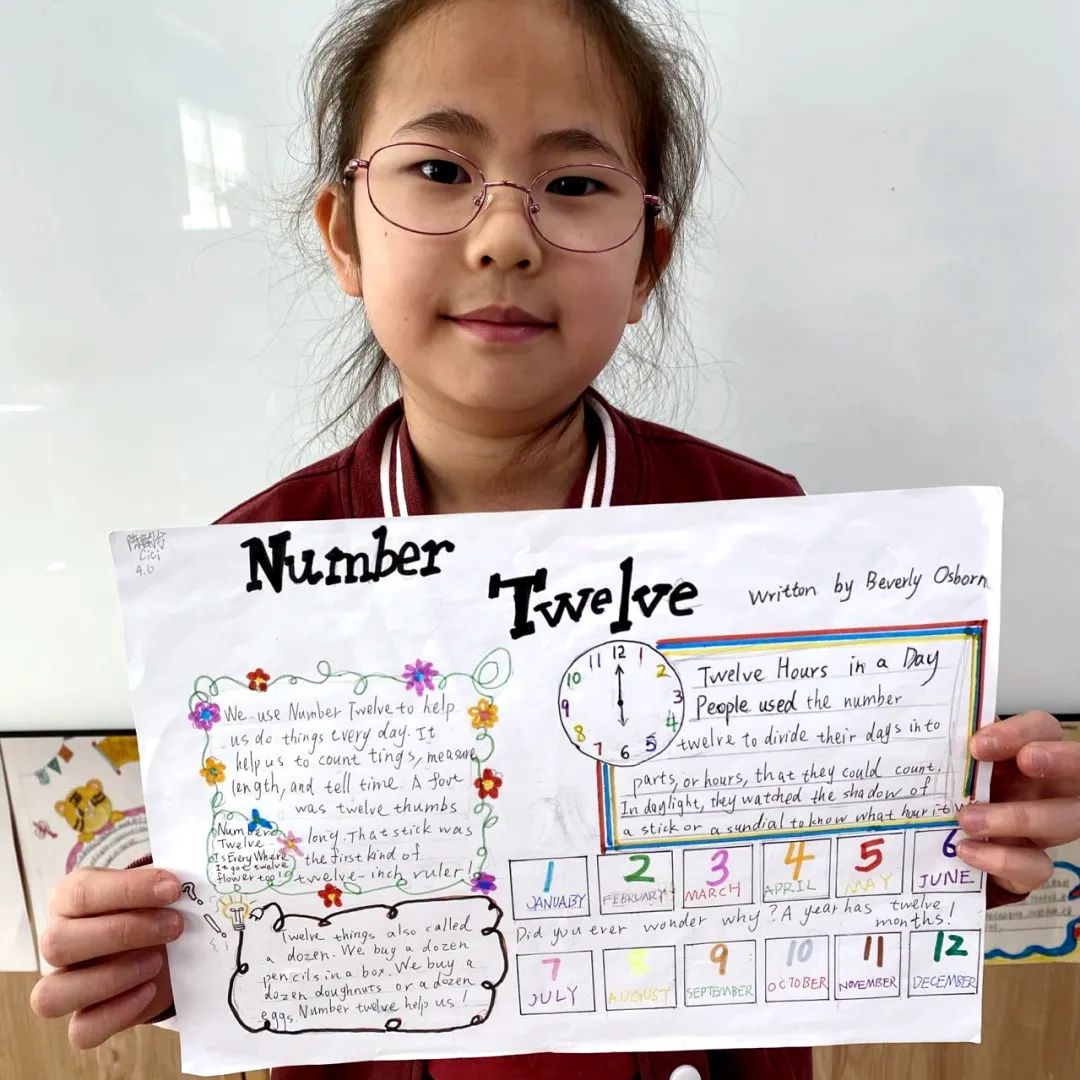 Cici
4.0
Number
Twelve
written by Beverly Osborn
We use Number Twelve to help
us do things every day. It
help us to count tings, measure
length, and tell time. A foot
was twelve thumbs
long. That stick was
the first kind of
twelve-inch ruler!
Number
Twelve
Is Every Where
It got twelve
flower too!
Twelve things also called
a dozen. We buy a dozen
pencils in a box. We buy a
dozen doughnuts or a dozen
eggs. Number twelve help us!
12 1 2 3 4 5 6 7 8 9 10 11
Twelve Hours in a Day
People used the number
twelve to divide their days into
parts, or hours, that they could count.
In daylight, they watched the shadow of
a stick or a sundial to know what hour it
1 2 3 4 5 6
JANUABY FEBRUARY MARCH APRIL MAY JUNE
Did you ever wonder why? A year has twelve
months!
7 8 9 10 11 12
JULY AUGUST SEPTEMBER OCTOBER NOVEMBER DECEMBER